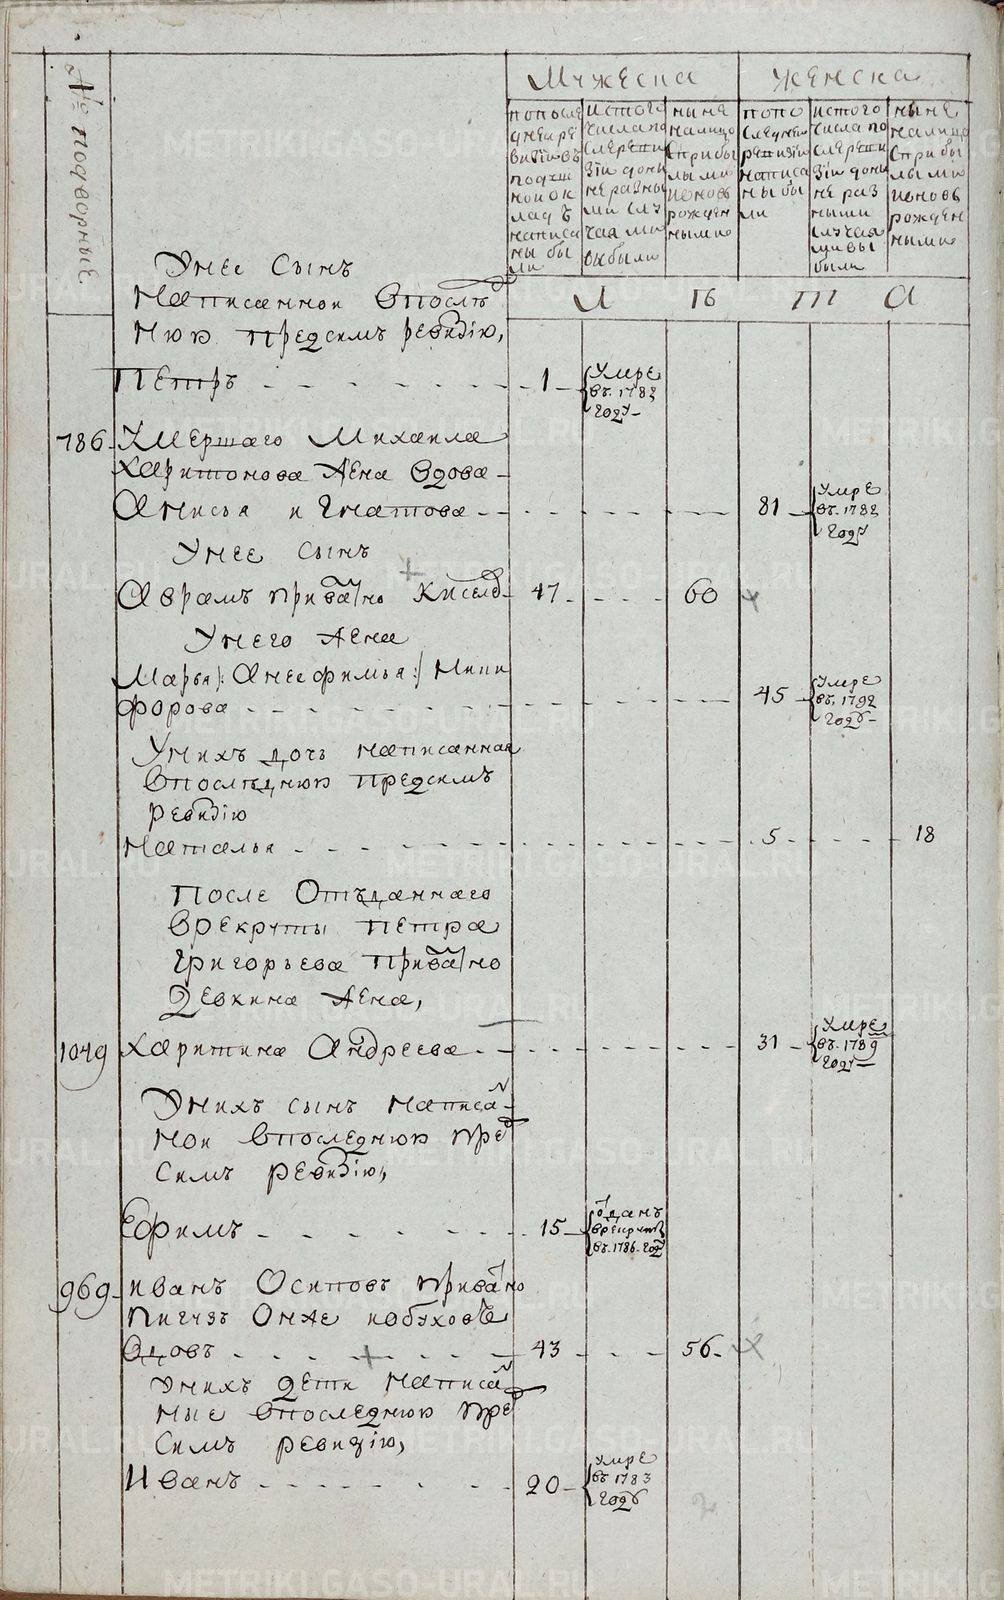 № подворные
Мужеска
Женска
по после
дней ре
визии въ
подуш
ной ок
ладъ
написа
ны бы
ли
исто го
числа по
сле реви
зіи до ны
не разны
ми слу
чаями
выбыли
ныне
на лицо
с прибы
лыми
и вновь
рожден
ными
по по
следней
ревизіи
написа
ны бы
ли
исто го
числа по
сле реви
зіи до ны
не раз
ными
случая
ми вы
были
ныне
на лицо
с прибы
лыми
и вновь
рожден
ными
Л ѣ т а
У нее сынъ
написанной в послѣд
нюю предсимъ ревизію,
Петръ 1 Умре
въ 1782
году
786 Умершаго Михаила
Харитонова жена вдова
Анисья Игнатова 81 Умре
въ 1782
году
У нее сынъ
Аврамъ прозвано Киселев 47 60
У него жена
Марья /: Анефимья :/ Ники
форова 45 Умре
въ 1792
году
У нихъ дочь написанная
в последнюю предсимъ
ревизію
Наталья 5 18
После отъданнаго
в рекруты Петра
Григорьева прозвано
Девкина жена,
1049 Харитина Андреева 31 Умре
въ 1789
году
У нихъ сынъ написан
ной в последнюю пред
симъ ревизію,
Ефимъ 15 отданъ
в рекруты
въ 1786 году
969 Иванъ Осиповъ прозвано
Онже Кобуховъ
вдовъ 43 56
У нихъ дети написан
ные в последнюю пред
симъ ревизію,
Иванъ 20 умре
въ 1783
году
METRIKI.GASO-URAL.RU